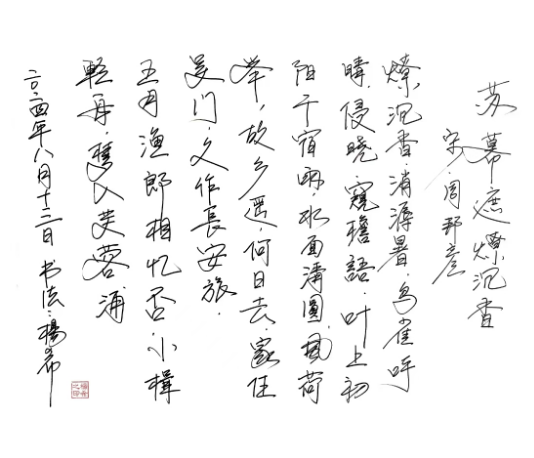 苏幕遮燎沉香
宋.周邦彦
燎沉香.消溽暑.鸟雀呼
晴.侵晓.窥檐語.叶上初
阳干宿雨.水面清圆.風荷
举.故乡遥.何日去.家住
吴门.久作長安旅.
五月渔郎相忆否.小楫
軽舟.夢入芙蓉浦
二〇〇四年八月十三日书法:楊希